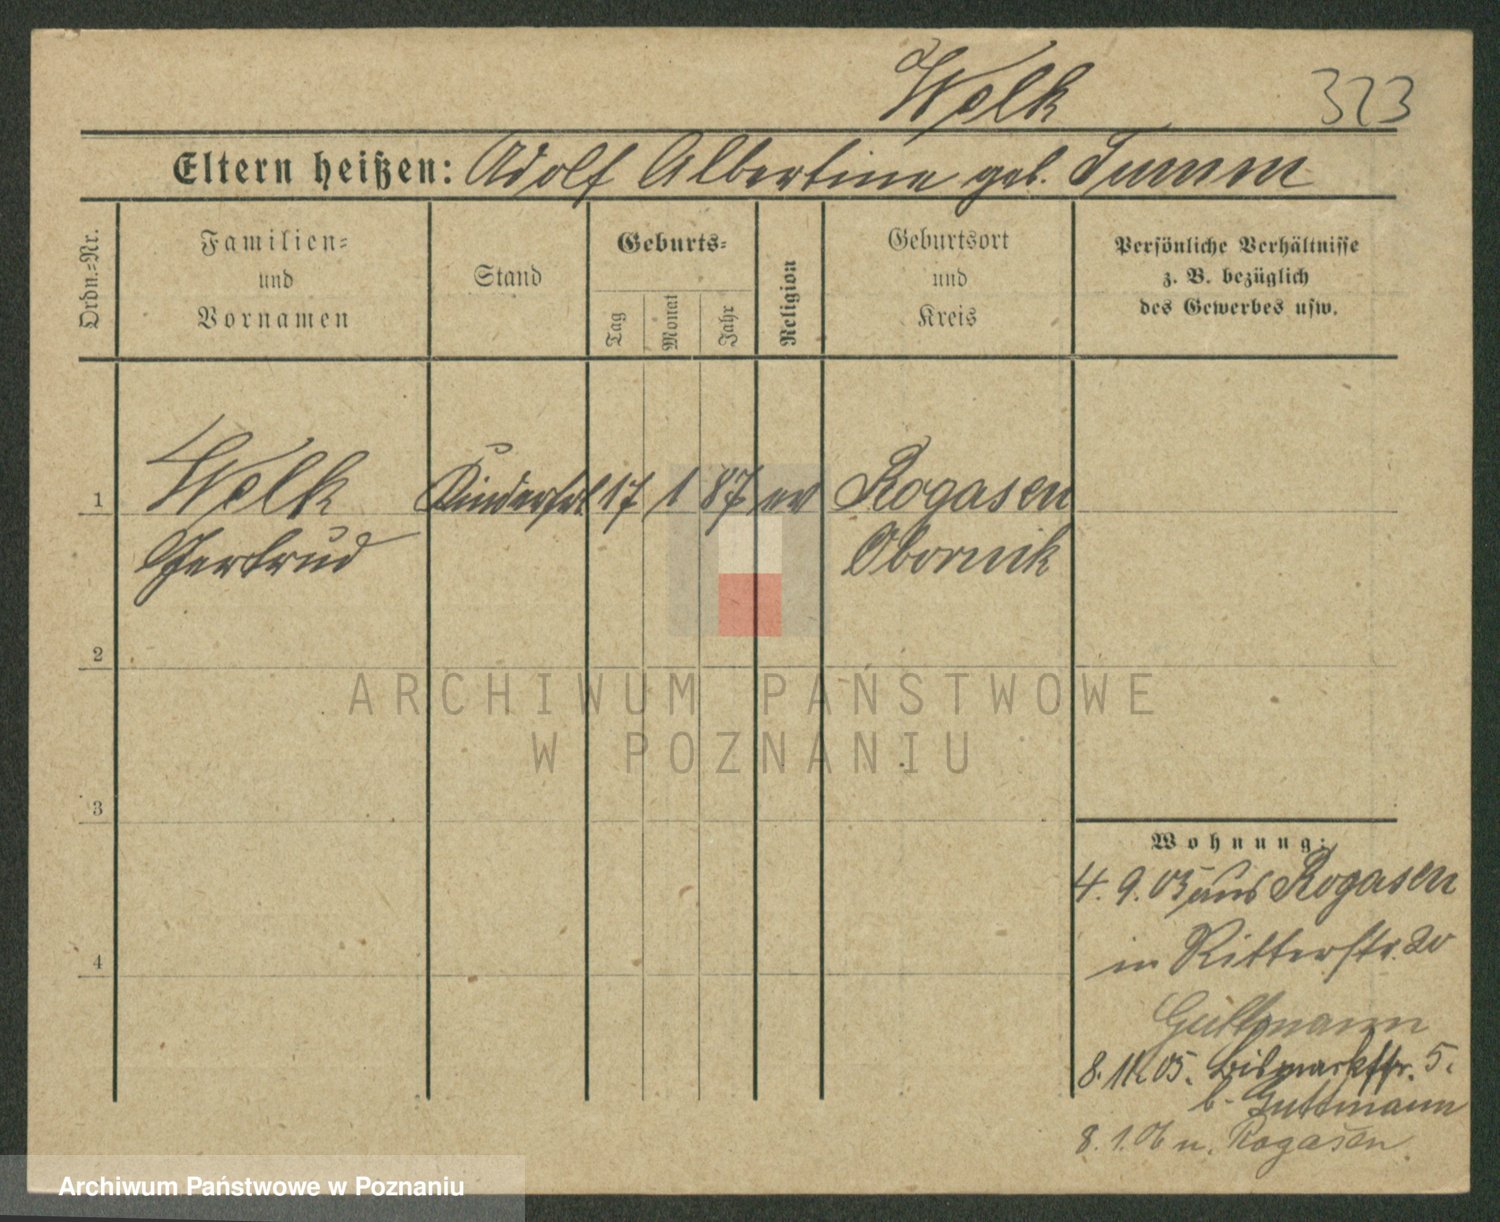 Wolk 323
Eltern heißen: Adolf Albertine geb. Tumm
Ordn.=Nr.
Familien=
und
Vornamen
Stand
Geburts=
Tag
Monat
Jahr
Religion
Geburtsort
und
Kreis
Persönliche Verhältnisse
z. B. bezüglich
des Gewerbes usw.
1 Wolk Kinderfrl 17 1 87 ev Rogasen
Gertrud Obornik
2
3
4
Wohnung:
4. 9. 05 aus Rogasen
in Ritterstr. 20
Guttmann
8. 11. 05. Bismarkstr. 5.
b. Guttmann
8. 1. 06 n. Rogasen.
ARCHIWUM PAŃSTWOWE
W POZNANIU
Archiwum Państwowe w Poznaniu